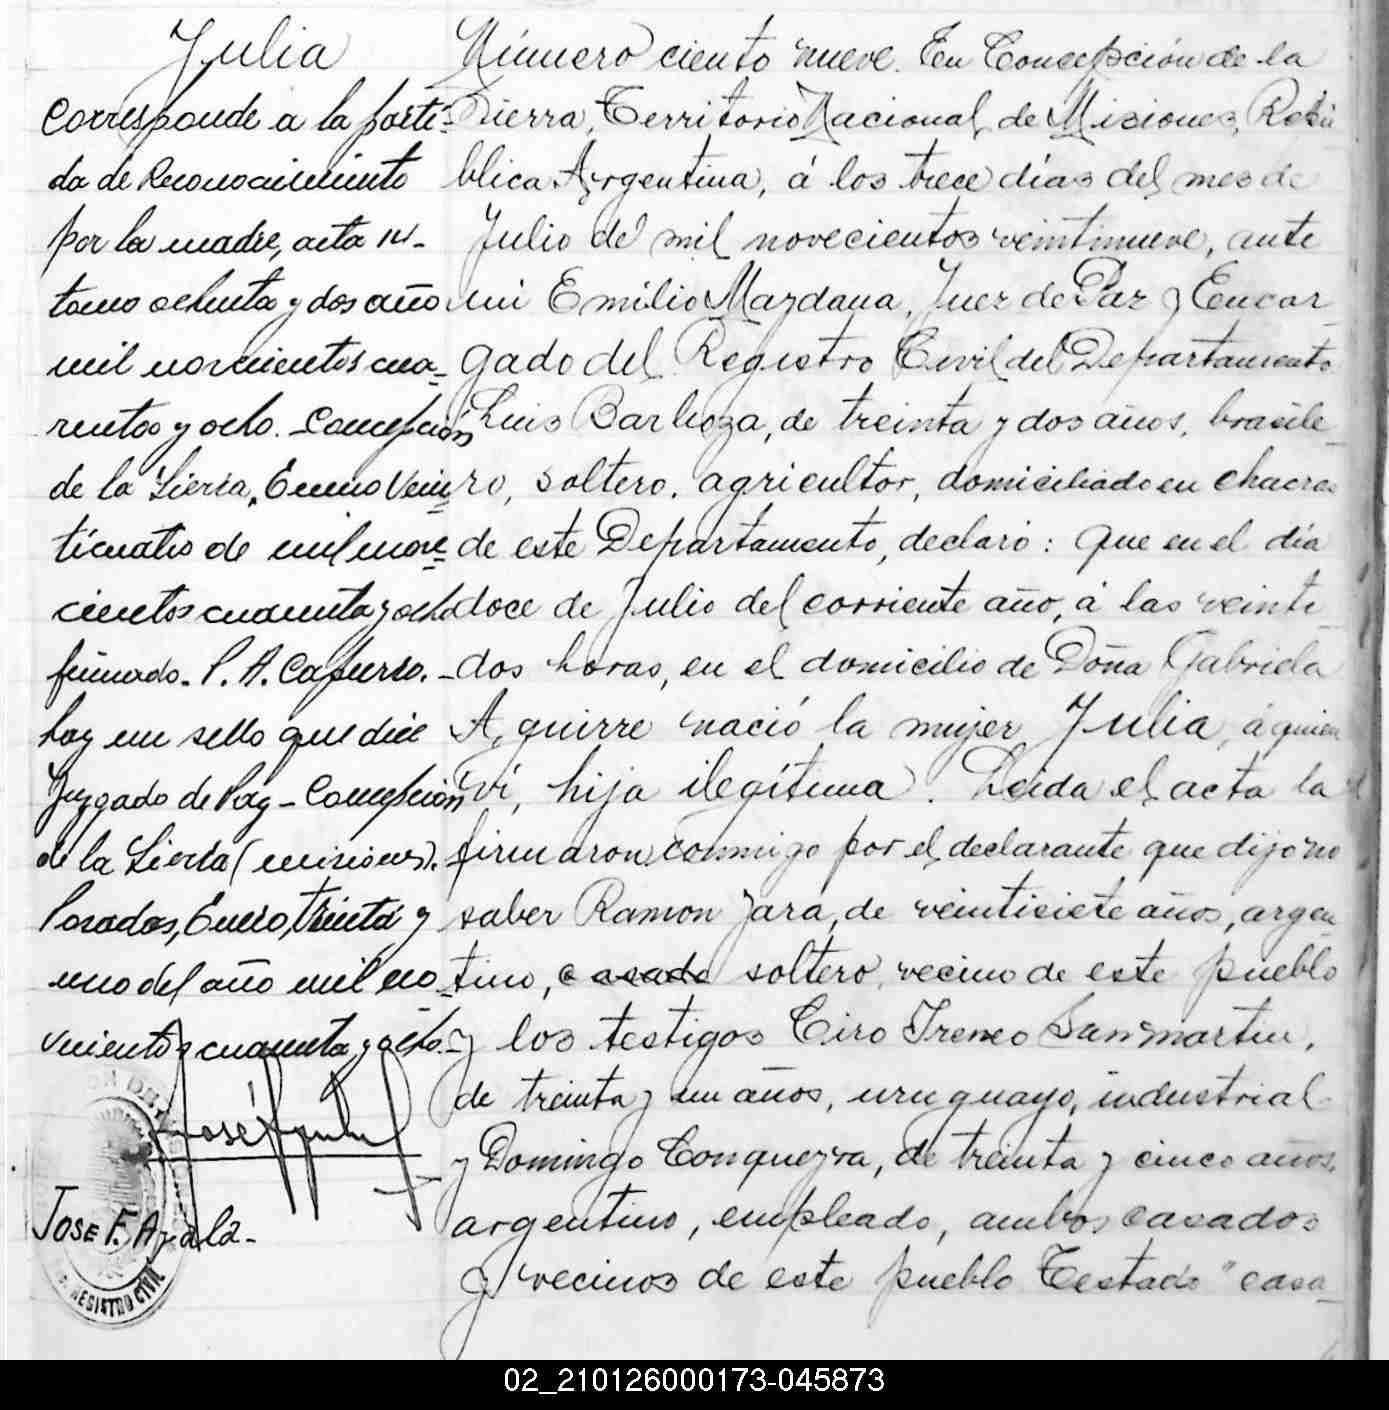 Julia
Corresponde a la parti-
da de Reconocimiento
por la madre, acta 14-
tomo ochenta y dos año
mil novecientos cua-
renta y ocho. Concepción
de la Sierra, Enero Vein-
ticuatro de mil nove-
cientos cuarenta y ocho
firmado. P. A. Capurro. -
hay un sello que dice
Juzgado de Paz - Concepción
de la Sierra (misiones).
Posadas, Enero, treinta y
uno del año mil no-
vecientos cuarenta y ocho.-
JOSE F. Ayala-
REGISTRO CIVIL
Número ciento nueve. En Concepción de la
Sierra, Territorio Nacional de Misiones, Repú
blica Argentina, á los trece días del mes de
Julio de mil novecientos veintinueve, ante
mi Emilio Maydana, Juez de Paz y Encar-
gado del Registro Civil del Departamento
Luis Barboza, de treinta y dos años, brasile-
ro, soltero, agricultor, domiciliado en chacra
de este Departamento, declaró: Que en el día
doce de Julio del corriente año, á las veinti
dos horas, en el domicilio de Doña Gabriela
Aguirre nació la mujer Julia, á quien
ví, hija ilegítima. Leida el acta la
firmaron conmigo por el declarante que dijo no
saber Ramon Jara, de veintisiete años, argen
tino, casado soltero, vecino de este pueblo
y los testigos Ciro Ireneo Sanmartin,
de treinta y un años, uruguayo, industrial
y Domingo Conqueyra, de treinta y cinco años,
argentino, empleado, ambos casados
y vecinos de este pueblo Testado "casa-
02_210126000173-045873